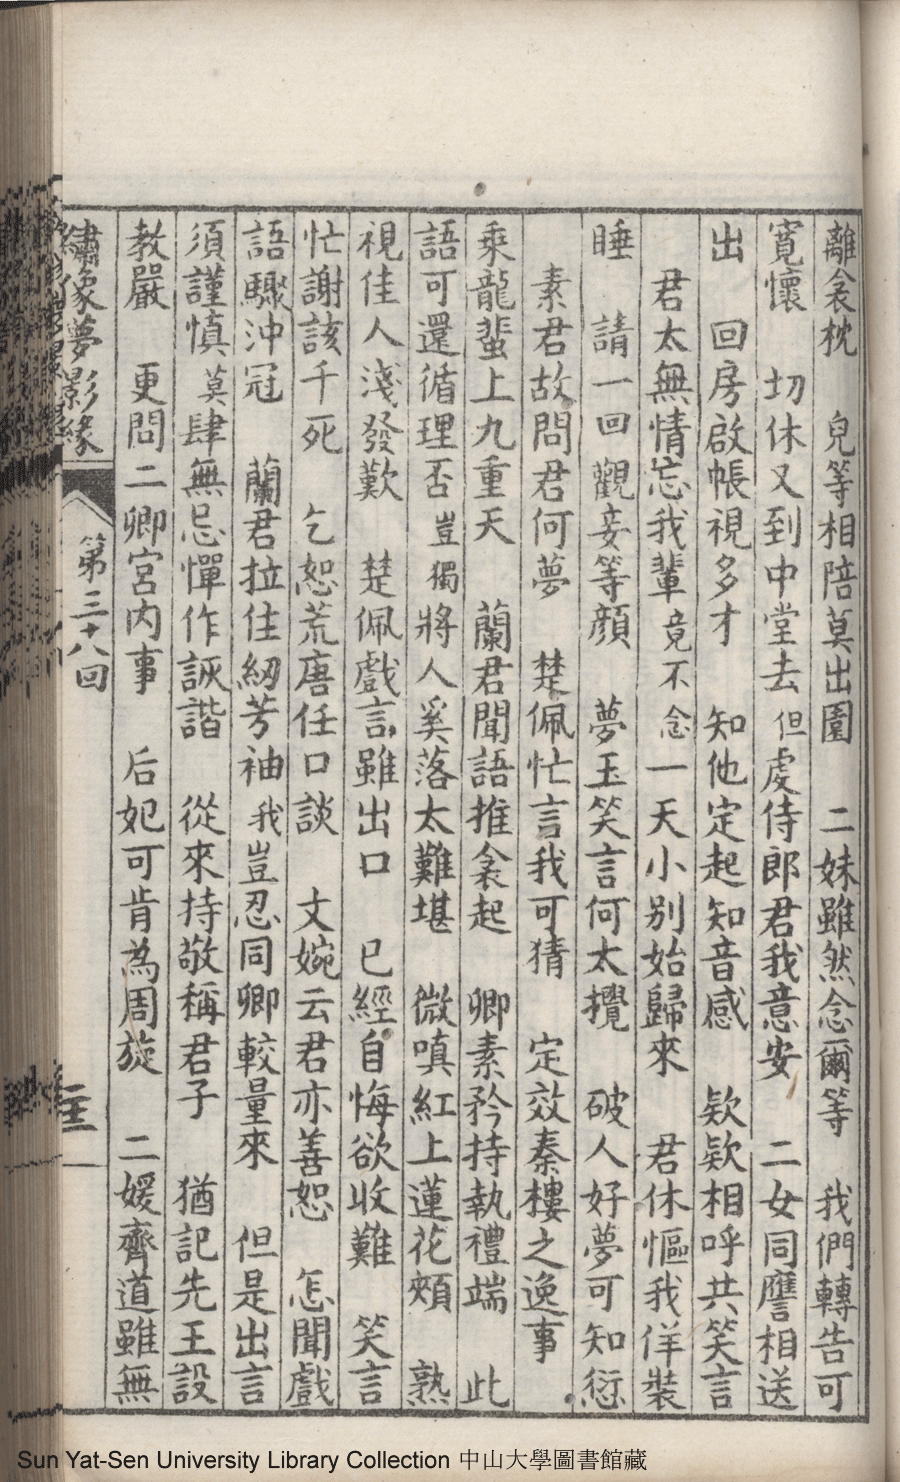 離衾枕　兒等相陪莫出園　二妹雖然念爾等　我們轉告可
寬懷　切休又到中堂去但虔侍郎君我意安　二女同譍相送
出　回房啟帳視多才　知他定起知音感　欵欵相呼共笑言
君太無情忘我輩竟不念一天小別始歸來　君休慪我佯裝
睡　請一回觀妾等顔　夢玉笑言何太攪　破人好夢可知愆
素君故問君何夢　楚佩忙言我可猜　定效秦樓之逸事
乘龍蜚上九重天　蘭君聞語推衾起　卿素矜持執禮端　此
語可還循理否豈獨將人奚落太難堪　微嗔紅上蓮花頰　熟
視佳人淺發歎　楚佩戲言雖出口　已經自悔欲收難　笑言
忙謝該千死　乞恕荒唐任口談　文婉云君亦善恕　怎聞戲
語驟沖冠　蘭君拉住紉芳袖我豈忍同卿較量來　但是出言
須謹慎莫肆無忌憚作詼諧　從來持敬稱君子　猶記先王設
教嚴　更問二卿宮內事　后妃可肯為周旋　二媛齊道雖無
繡像夢影緣　第三十八回
Sun Yat-Sen University Library Collection 中山大學圖書館藏